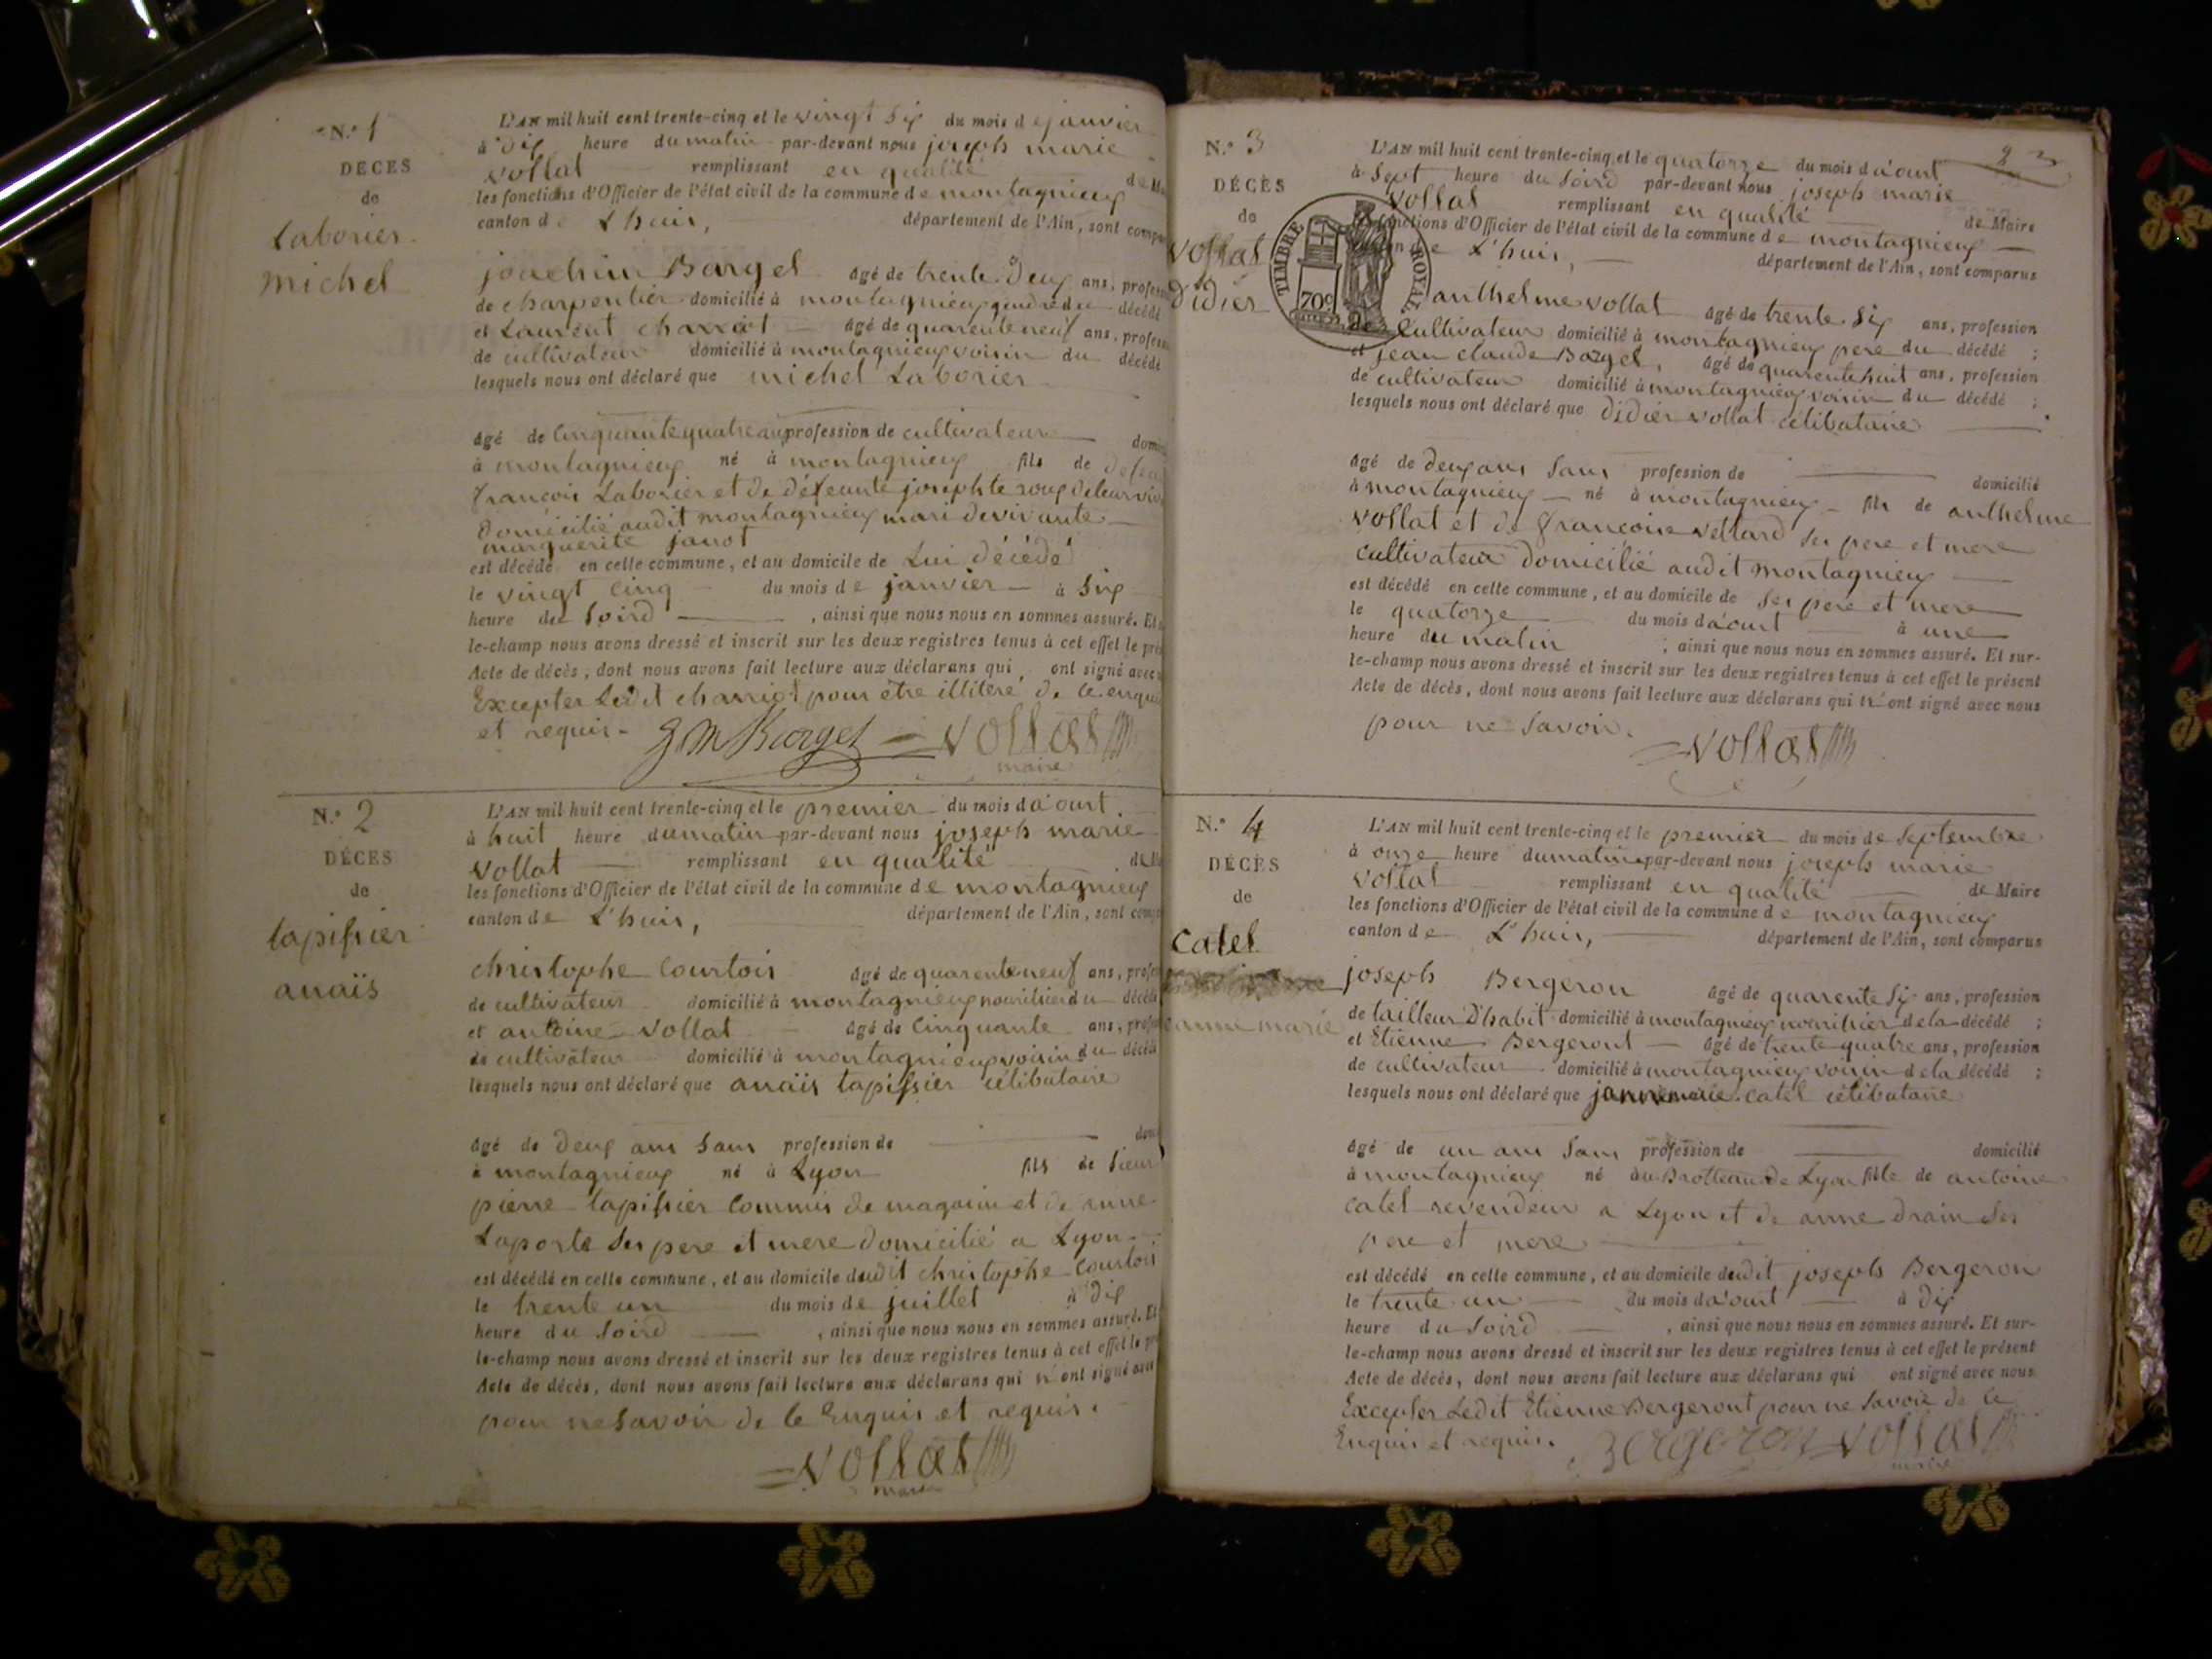 N.° 1
DÉCÈS
de
Laborier
michel
L'AN mil huit cent trente-cinq et le vingt six du mois de janvier
à dix heure du matin par-devant nous joseph marie
vollat remplissant en qualité de
les fonctions d'Officier de l'état civil de la commune de montagnieux
canton de L'huis, département de l'Ain, sont
joachim Bargel âgé de trente deux ans,
de charpentier domicilié à montagnieux gendre du décédé
et Laurent charriot âgé de quarente neuf ans,
de cultivateur domicilié à montagnieux voisin du décédé
lesquels nous ont déclaré que michel Laborier
âgé de cinquante quatre ans profession de cultivateur
à montagnieux né à montagnieux fils de
françois Laborier et de défeunte josephte roux de leur
domicilié audit montagnieux mari de vivante
marguerite janot
est décédé en cette commune, et au domicile de Lui décédé
le vingt cinq du mois de janvier à six
heure du soird , ainsi que nous nous en sommes assuré. Et
le-champ nous avons dressé et inscrit sur les deux registres tenus à cet effet le
Acte de décès, dont nous avons fait lecture aux déclarans qui ont signé avec
Excepter Ledit charriot pour être illitere de ce enquis
et requis.
J M Bargel vollat
maire
N.° 2
DÉCÈS
de
tapissier
anaïs
L'AN mil huit cent trente-cinq et le premier du mois d'aout
à huit heure du matin par-devant nous joseph marie
vollat remplissant en qualité
les fonctions d'Officier de l'état civil de la commune de montagnieux
canton de L'huis, département de l'Ain, sont
christophe Courtois âgé de quarente neuf ans,
de cultivateur domicilié à montagnieux nourricier du décédé
et antoine vollat âgé de cinquante ans,
de cultivateur domicilié à montagnieux voisin du décédé
lesquels nous ont déclaré que anaïs tapissier célibataire
âgé de deux ans sans profession de
à montagnieux né à Lyon fils de sieur
pierre tapissier Commis de magasin et de anne
Laporte ses pere et mere domicilié a Lyon
est décédé en cette commune, et au domicile dudit christophe Courtois
le trente un du mois de juillet à dix
heure du soird , ainsi que nous nous en sommes assuré. Et
le-champ nous avons dressé et inscrit sur les deux registres tenus à cet effet le
Acte de décès, dont nous avons fait lecture aux déclarans qui n'ont signé avec
pour ne savoir de ce Enquis et requis.
vollat
maire
N.° 3
DÉCÈS
de
vollat
didier
TIMBRE ROYAL
70c
L'AN mil huit cent trente-cinq et le quatorze du mois d'aout
à sept heure du soird par-devant nous joseph marie
vollat remplissant en qualité de Maire
fonctions d'Officier de l'état civil de la commune de montagnieux
de L'huis, département de l'Ain, sont comparus
anthelme vollat âgé de trente six ans, profession
de Cultivateur domicilié à montagnieux pere du décédé ;
et jean claude Bargel, âgé de quarente huit ans, profession
de cultivateur domicilié à montagnieux voisin du décédé ;
lesquels nous ont déclaré que didier vollat célibataire
âgé de deux ans sans profession de domicilié
à montagnieux né à montagnieux fils de anthelme
vollat et de françoise vettard ses pere et mere
cultivateur domicilié audit montagnieux
est décédé en cette commune, et au domicile de ses pere et mere
le quatorze du mois d'aout à une
heure du matin ; ainsi que nous nous en sommes assuré. Et sur-
le-champ nous avons dressé et inscrit sur les deux registres tenus à cet effet le présent
Acte de décès, dont nous avons fait lecture aux déclarans qui n'ont signé avec nous
pour ne savoir.
vollat
N.° 4
DÉCÈS
de
Catel
anne marie
L'AN mil huit cent trente-cinq et le premier du mois de septembre
à onze heure du matin par-devant nous joseph marie
vollat remplissant en qualité de Maire
les fonctions d'Officier de l'état civil de la commune de montagnieux
canton de L'huis, département de l'Ain, sont comparus
joseph Bergeron âgé de quarente six ans, profession
de tailleur D'habit domicilié à montagnieux nourricier de la décédé ;
et Etienne Bergeront âgé de trente quatre ans, profession
de cultivateur domicilié à montagnieux voisin de la décédé ;
lesquels nous ont déclaré que catel célibataire
âgé de un ans sans profession de domicilié
à montagnieux né au Brotteau de Lyon fille de antoine
catel revendeur a Lyon et de anne drain ses
pere et mere
est décédé en cette commune, et au domicile dudit joseph Bergeron
le trente un du mois d'aout à dix
heure du soird , ainsi que nous nous en sommes assuré. Et sur-
le-champ nous avons dressé et inscrit sur les deux registres tenus à cet effet le présent
Acte de décès, dont nous avons fait lecture aux déclarans qui ont signé avec nous
Excepter Ledit Etienne Bergeront pour ne savoir de ce
Enquis et requis. Bergeron vollat
maire